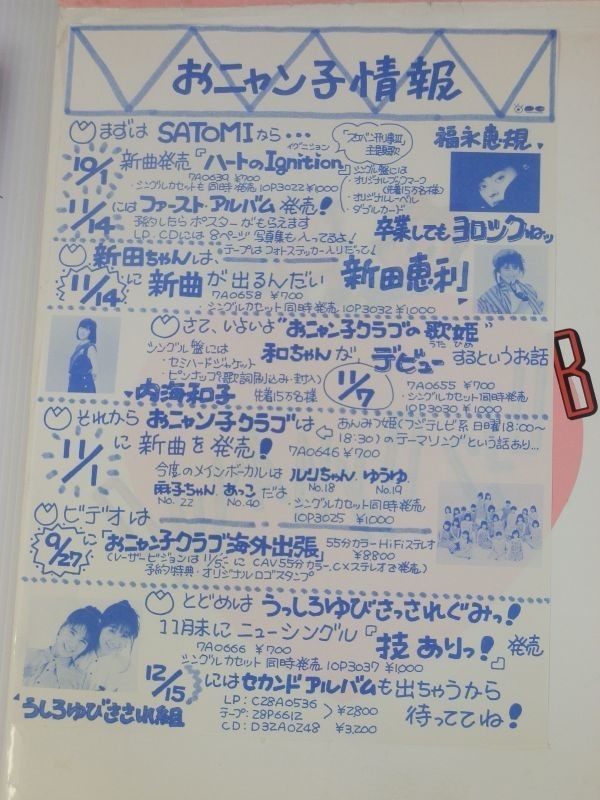 おニャン子情報
まずは SATOMI なら…
「スケバン刑事Ⅱ」主題歌
福永恵規
10/1 新曲発売『ハートのIgnition』
イグニション
7A0639 ¥700
・シングルカセットも同時発売 10P3022 ¥1000
シングル盤には
・オリジナルブックマーク
(先着15万名様)
・オリジナルレーベル
・ダブルカード
11/14 にはファースト・アルバム発売!
予約したらポスターがもらえます
LP、CDには8ページ写真集も入ってるよ!
テープはフォトステッカー入りだって!
卒業してもヨロシクねッ
新田ちゃんは、
11/14 に新曲が出るんだい
新田恵利
7A0658 ¥700
・シングルカセット同時発売 10P3032 ¥1000
さて、いよいよ"おニャン子クラブの歌姫"
うた ひめ
和ちゃんがデビューするというお話
シングル盤には
・セミハードジャケット
・ピンナップ(歌詞刷込み・封入)
先着15万名様
11/7
7A0655 ¥700
・シングルカセット同時発売
10P3030 ¥1000
内海和子
それからおニャン子クラブは
あんみつ姫(フジテレビ系 日曜18:00~
18:30)のテーマソングという話あり…
11/1 に新曲を発売!
7A0646 ¥700
今度のメインボーカルは ルリちゃん、ゆうゆ、
No.18 No.19
麻子ちゃん、あっこ だよ
No.22 No.40
・シングルカセット同時発売
10P3025 ¥1000
ビデオは
9/27 に「おニャン子クラブ海外出張」
55分カラーHiFiステレオ
¥8800
(レーザービジョンは11/5にCAV55分カラー、CXステレオで発売)
予約特典・オリジナルロゴスタンプ
とどめは うっしろゆびさっされぐみっ!
11月末にニューシングル『技ありっ!』発売
7A0666 ¥700
シングルカセット同時発売 10P3037 ¥1000
12/15 にはセカンドアルバムも出ちゃうから
待っててね!
LP:C28A0536
テープ:28P6612
¥2,800
CD:D32A0248 ¥3,200
うしろゆびさされ組
B